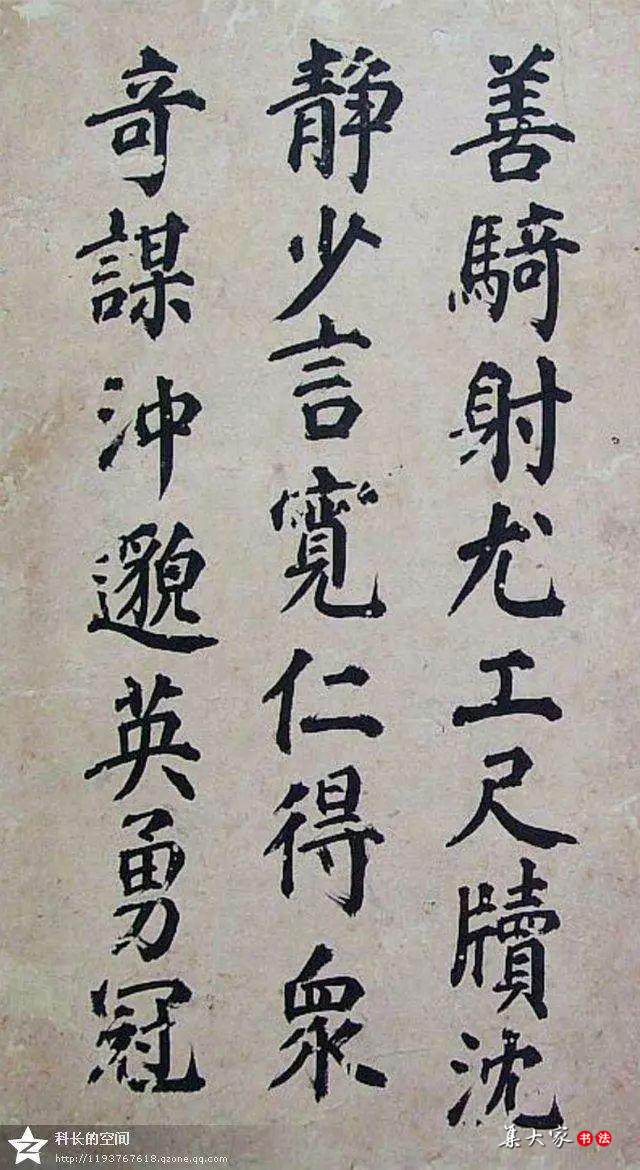 善騎射尤工尺牘沈
静少言寬仁得衆
奇謀沖邈英勇冠
科长的空间
http://1193767618.qzone.qq.com
集大家书法